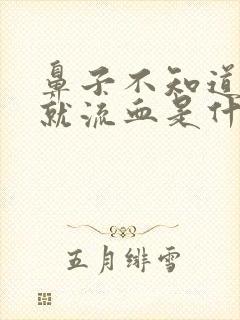 鼻子不知道
就流血是什
五月绯雪